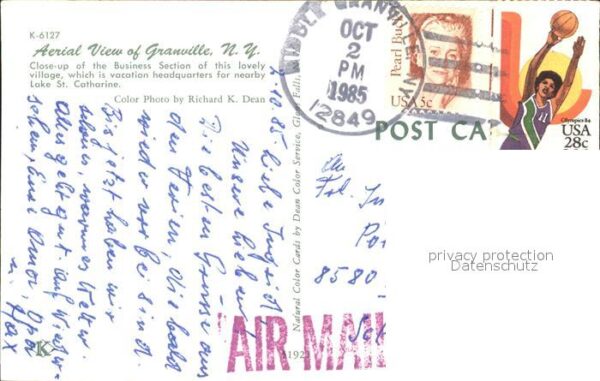 K-6127
Aerial View of Granville, N. Y.
Close-up of the Business Section of this lovely
village, which is vacation headquarters for nearby
Lake St. Catharine.
Color Photo by Richard K. Dean
MIDDLE GRANVILLE
OCT
2
PM
1985
12849
Pearl Buck
USA 5c
Olympics 84
USA
28c
POST CA
Natural Color Cards by Dean Color Service, Glens Falls,
2.10.85. Liebe Ingrid!
Unsere lieben
Die besten Grüsse aus
den Ferien, die bald
wieder vorbei sind.
Bis jetzt haben wir
schönes, warmes Wetter.
Alles geht gut. Auf Wieder-
sehen, eure Omi, Opa
u. Max
An
Frl. In
Po
8580
Sch
privacy protection
Datenschutz
"AIR MAI
K